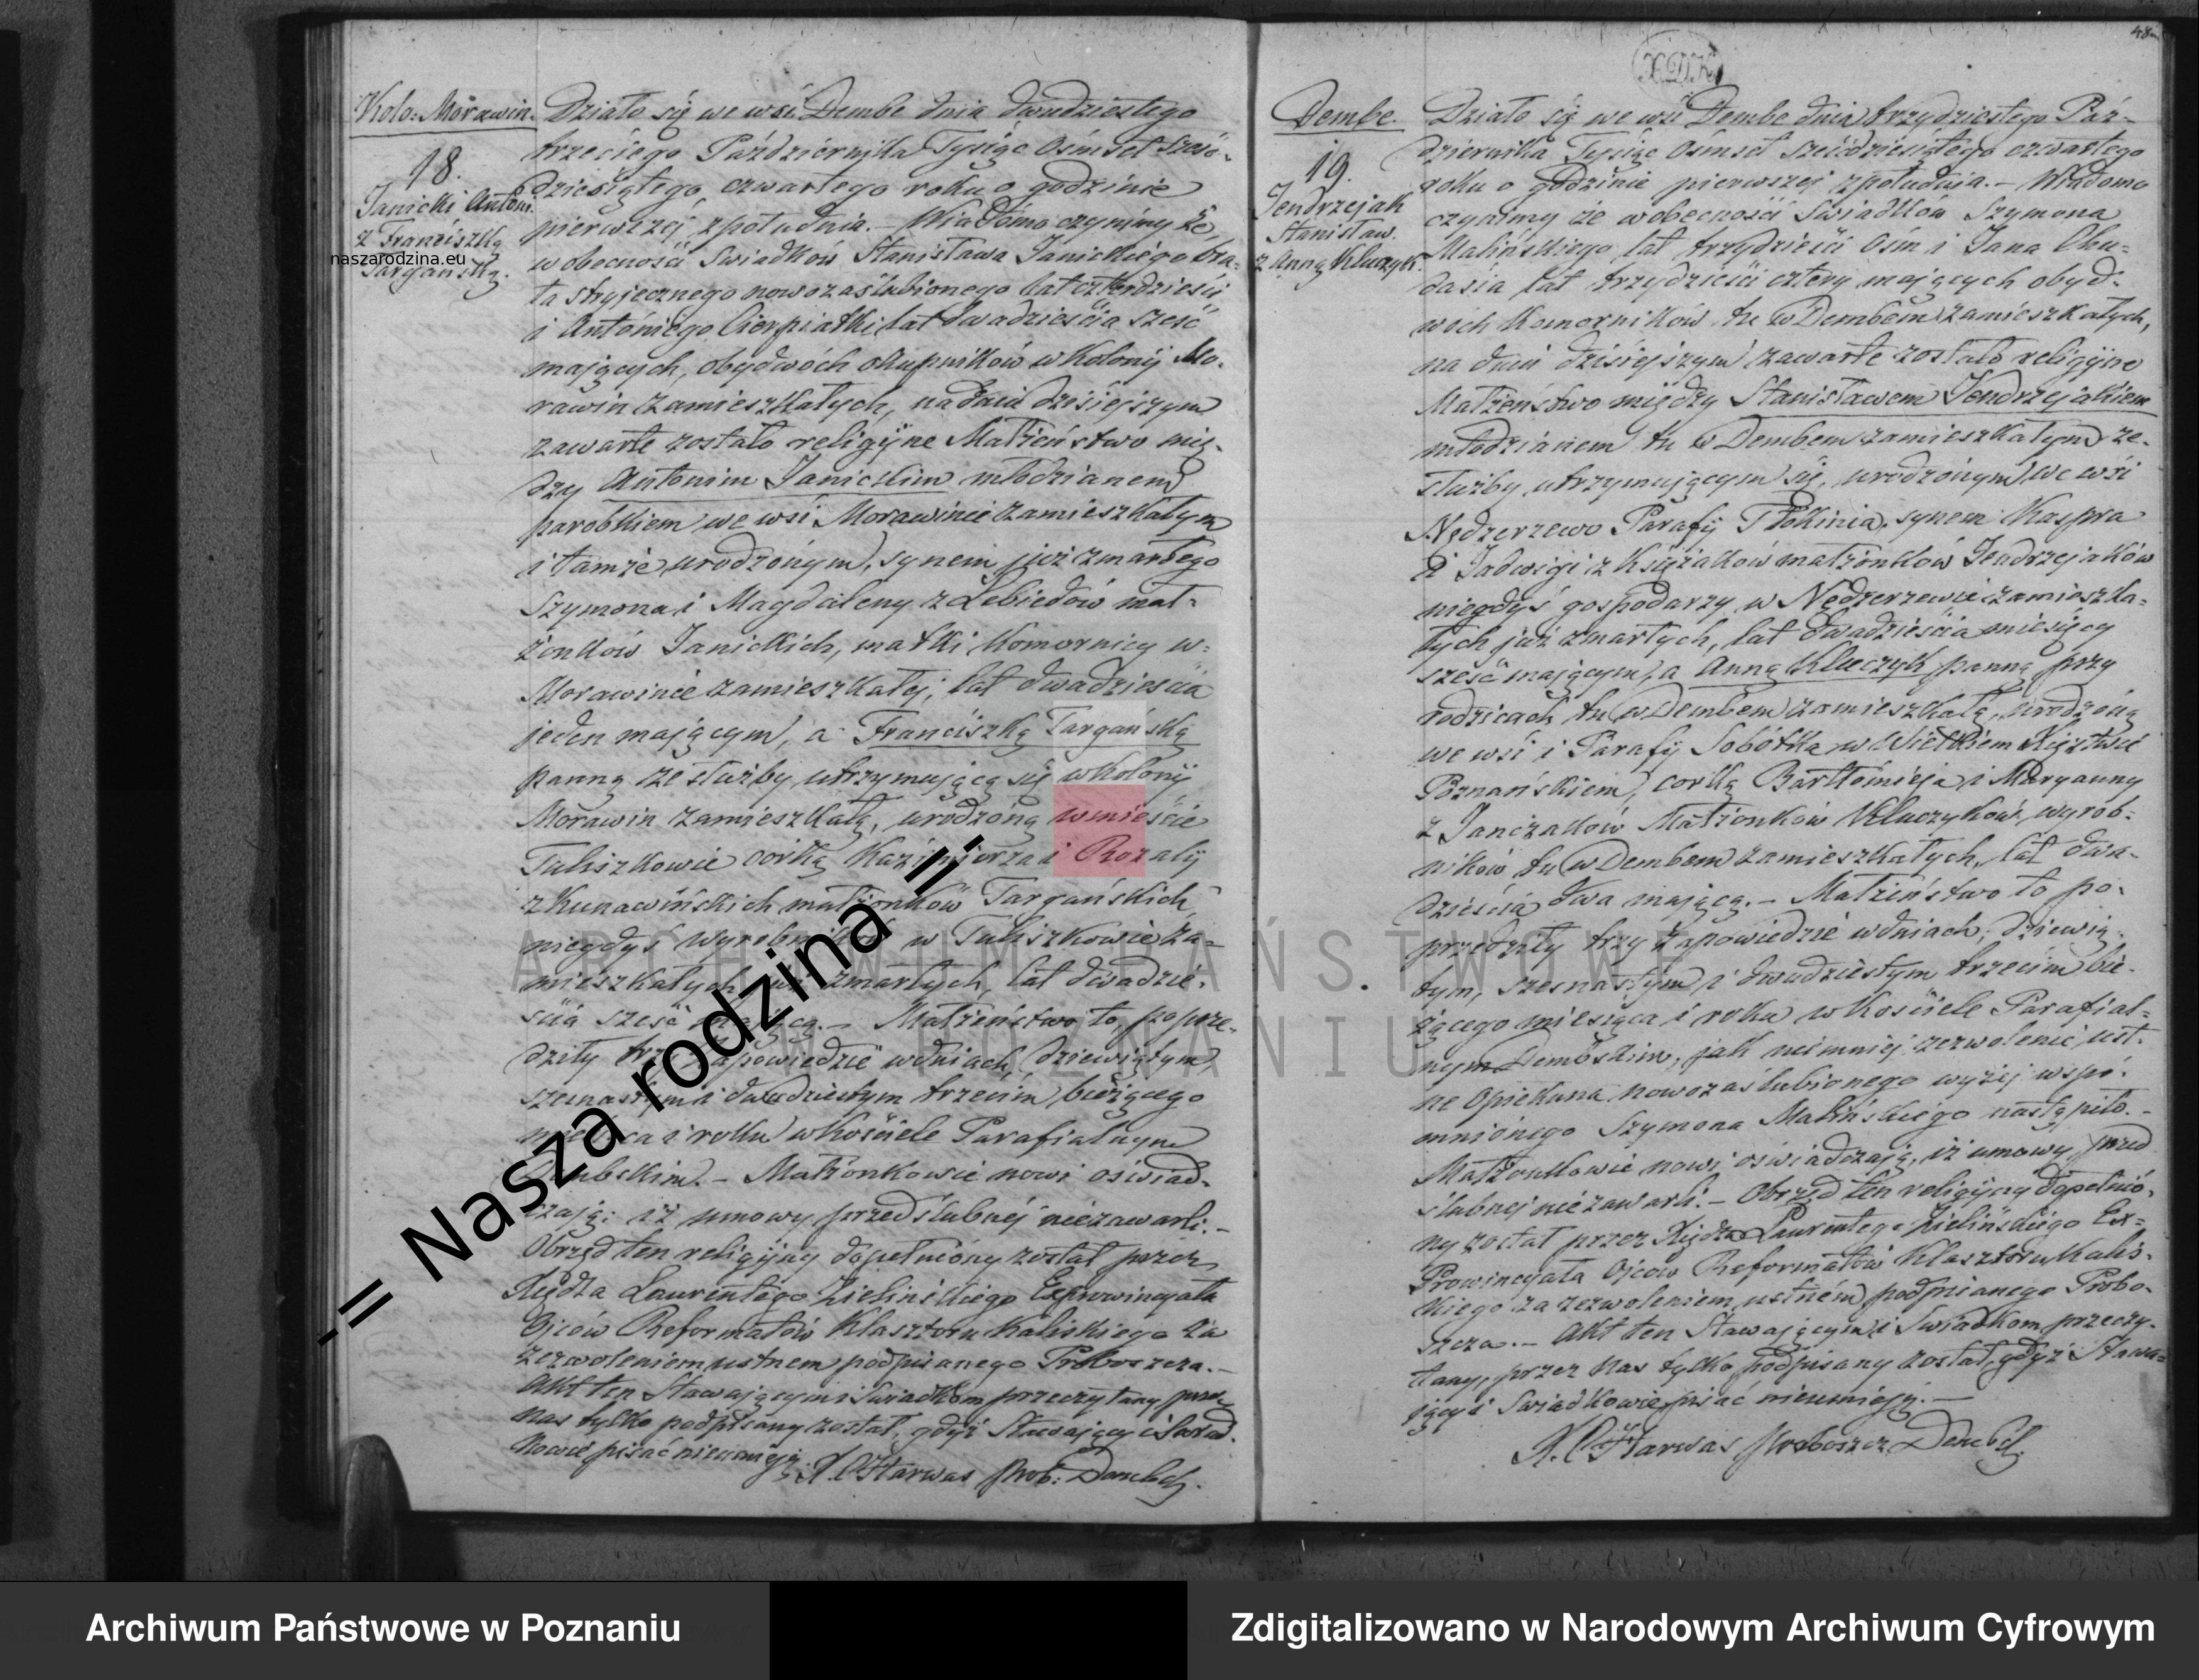 Kolo: Morawin.
18.
Janicki Antoni.
z Franciszką
naszarodzina.eu
Targańską.
Działo się we wsi Dembe dnia dwudziestego
trzeciego Października Tysiąc Ośmset sześć-
dziesiątego czwartego roku o godzinie
pierwszej z południa. – Wiadomo czynimy że
w obecności Swiadków Stanisława Janickiego bra-
ta stryjecznego nowozaślubionego lat czterdzieści
i Antoniego Cierpiatki lat dwadzieścia sześć
mających, obydwóch okupników w Kolonij Mo-
rawin zamieszkałych, na dniu dzisiejszym
zawarte zostało religijne Małżeństwo mię-
dzy Antonim Janickim młodzianem
parobkiem we wsi Morawinie zamieszkałym
i tamże urodzonym, synem już zmarłego
Szymona i Magdaleny z Lebiedów mał-
żonków Janickich, matki komornicy w-
Morawinie zamieszkałej, lat dwadzieścia
jeden mającym, a Franciszką Targańską
panną ze służby utrzymującą się w Kolonij
Morawin zamieszkałą, urodzoną w mieście
Tuliszkowie córką Kazimierza i Rozalij
z Kunawińskich małżonków Targańskich
niegdyś wyrobników w Tuliszkowie za-
mieszkałych już zmarłych, lat dwadzie-
ścia sześć mającą. – Małżeństwo to poprze-
dziły trzy zapowiedzie w dniach, dziewiątym
szesnastym i dwudziestym trzecim bieżącego
miesiąca i roku w kościele Parafialnym
Dembskim. – Małżonkowie nowi oświad-
czają: iż umowy przedślubnéj niezawarli. –
Obrzęd ten religijny dopełniony został przez
Xiędza Laurentego Zielińskiego Exprowincyała
Ojców Reformatów Klasztoru Kaliskiego za
zezwoleniem ustnem podpisanego Proboszcza. –
Akt ten Stawającym i Swiadkom przeczytany przez
nas tylko podpisany został, gdyż Stawający i Swiad-
kowie pisać nieumieją.
X. Harwas Prob: Dembsk.
48
X.D.K.
Dembe.
19.
Jendrzejak
Stanisław.
z Anną Kluczyk.
Działo się we wsi Dembe dnia trzydziestego Paź-
dziernika Tysiąc Ośmset sześćdziesiątego czwartego
roku o godzinie pierwszej z południa. – Wiadomo
czynimy że w obecności Swiadków Szymona
Malińskiego lat trzydzieści Ośm i Jana Chu-
dasia lat trzydzieści cztery mających obyd-
woch Komorników tu w Dembem zamieszkałych,
na dniu dzisiejszym zawarte zostało religijne
Małżeństwo między Stanisławem Jendrzejakiem
młodzianem tu w Dembem zamieszkałym ze-
służby utrzymującym się, urodzonym we wsi
Nędzerzewo Parafij Tłokinia, synem Kaspra
i Jadwigi z Księżaków małżonków Jendrzejaków
niegdyś gospodarzy w Nędzerzewie zamieszka-
łych już zmarłych, lat dwadzieścia miesięcy
sześć mającym, a Anną Kluczyk panną przy
rodzicach tu w Dembem zamieszkałą, urodzoną
we wsi i Parafij Sobótka w Wielkiem Xięztwie
Poznańskiem, corką Bartłomieja i Maryanny
z Janczaków Małżonków Kluczyków, wyrob-
ników tu w Dembem zamieszkałych, lat dwa-
dzieścia dwa mającą. – Małżeństwo to po-
przedziły trzy zapowiedzie w dniach, dziewią-
tym, szesnastym i dwudziestym trzecim bie-
żącego miesiąca i roku w kościele Parafial-
nym Dembskim, jak niemniej zezwolenie ust-
ne Opiekuna nowozaślubionego wyżej wspo-
mnionego Szymona Malińskiego nastąpiło. –
Małżonkowie nowi oświadczają, iż umowy przed
ślubnej niezawarli. – Obrzęd ten religijny dopełnio-
ny został przez Xiędza Laurentego Zielińskiego Ex-
Prowincyała Ojców Reformatów Klasztoru Kalis-
kiego za zezwoleniem ustném podpisanego Probo-
szcza. – Akt ten Stawającym i Swiadkom przeczy-
tany, przez nas tylko podpisany został, gdyż Stawa-
jący i Swiadkowie pisać nieumieją. –
X. Harwas Proboszcz Dembsk.
ARCHIWUM PAŃSTWOWE
W POZNANIU
-= Nasza rodzina =-
Archiwum Państwowe w Poznaniu
Zdigitalizowano w Narodowym Archiwum Cyfrowym